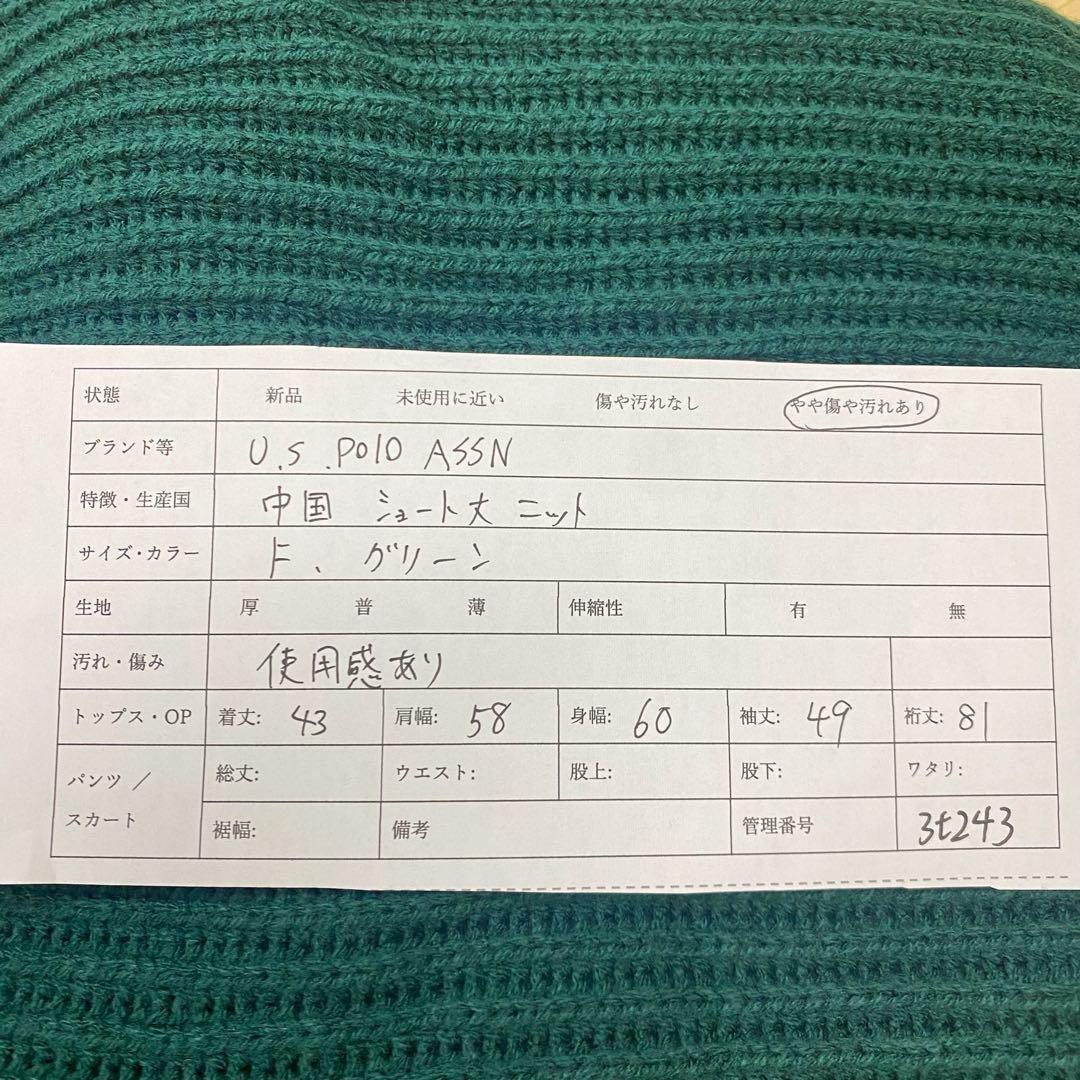 状態 新品 未使用に近い 傷や汚れなし やや傷や汚れあり
ブランド等 U.S.POLO ASSN
特徴・生産国 中国 ショート丈 ニット
サイズ・カラー F、グリーン
生地 厚 普 薄 伸縮性 有 無
汚れ・傷み 使用感あり
トップス・OP 着丈: 43 肩幅: 58 身幅: 60 袖丈: 49 裄丈: 81
パンツ ／ スカート 総丈: ウエスト: 股上: 股下: ワタリ:
裾幅: 備考 管理番号 3t243